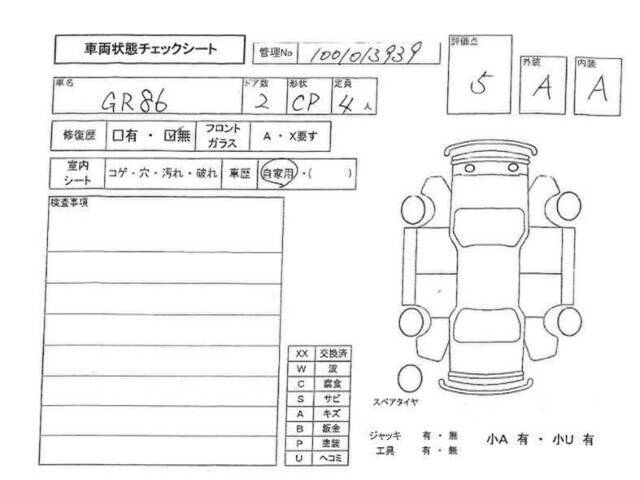 車両状態チェックシート 管理No 1001013939
評価点 5
外装 A
内装 A
車名 GR86 ドア数 2 形状 CP 定員 4人
修復歴 □有・☑無 フロントガラス A・X要す
室内シート コゲ・穴・汚れ・破れ 車歴 自家用・( )
検査事項
XX 交換済
W 波
C 腐食
S サビ
A キズ
B 鈑金
P 塗装
U ヘコミ
スペアタイヤ
ジャッキ 有・無
工具 有・無
小A 有・小U 有